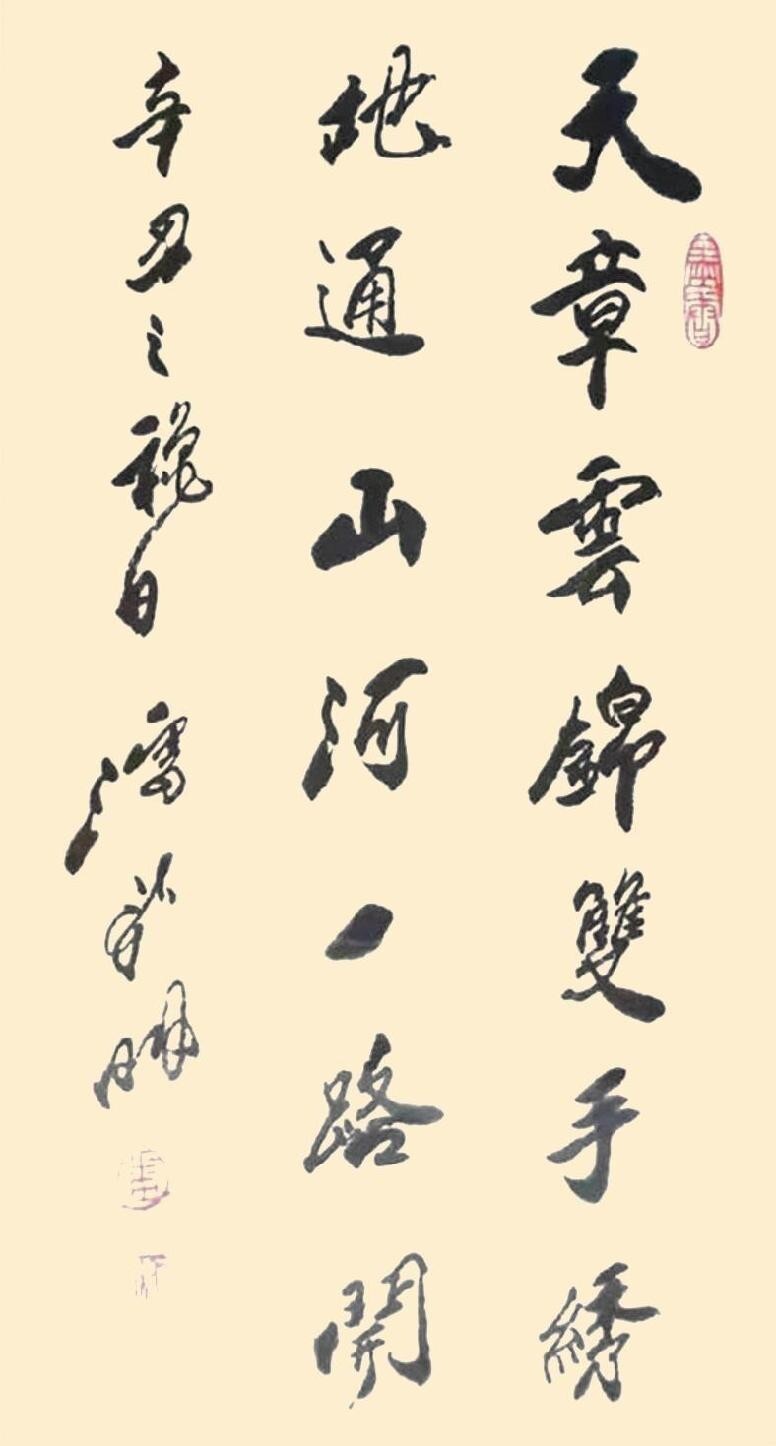 天章雲錦雙手綉
地通山河一路開
辛丑之穐日 明